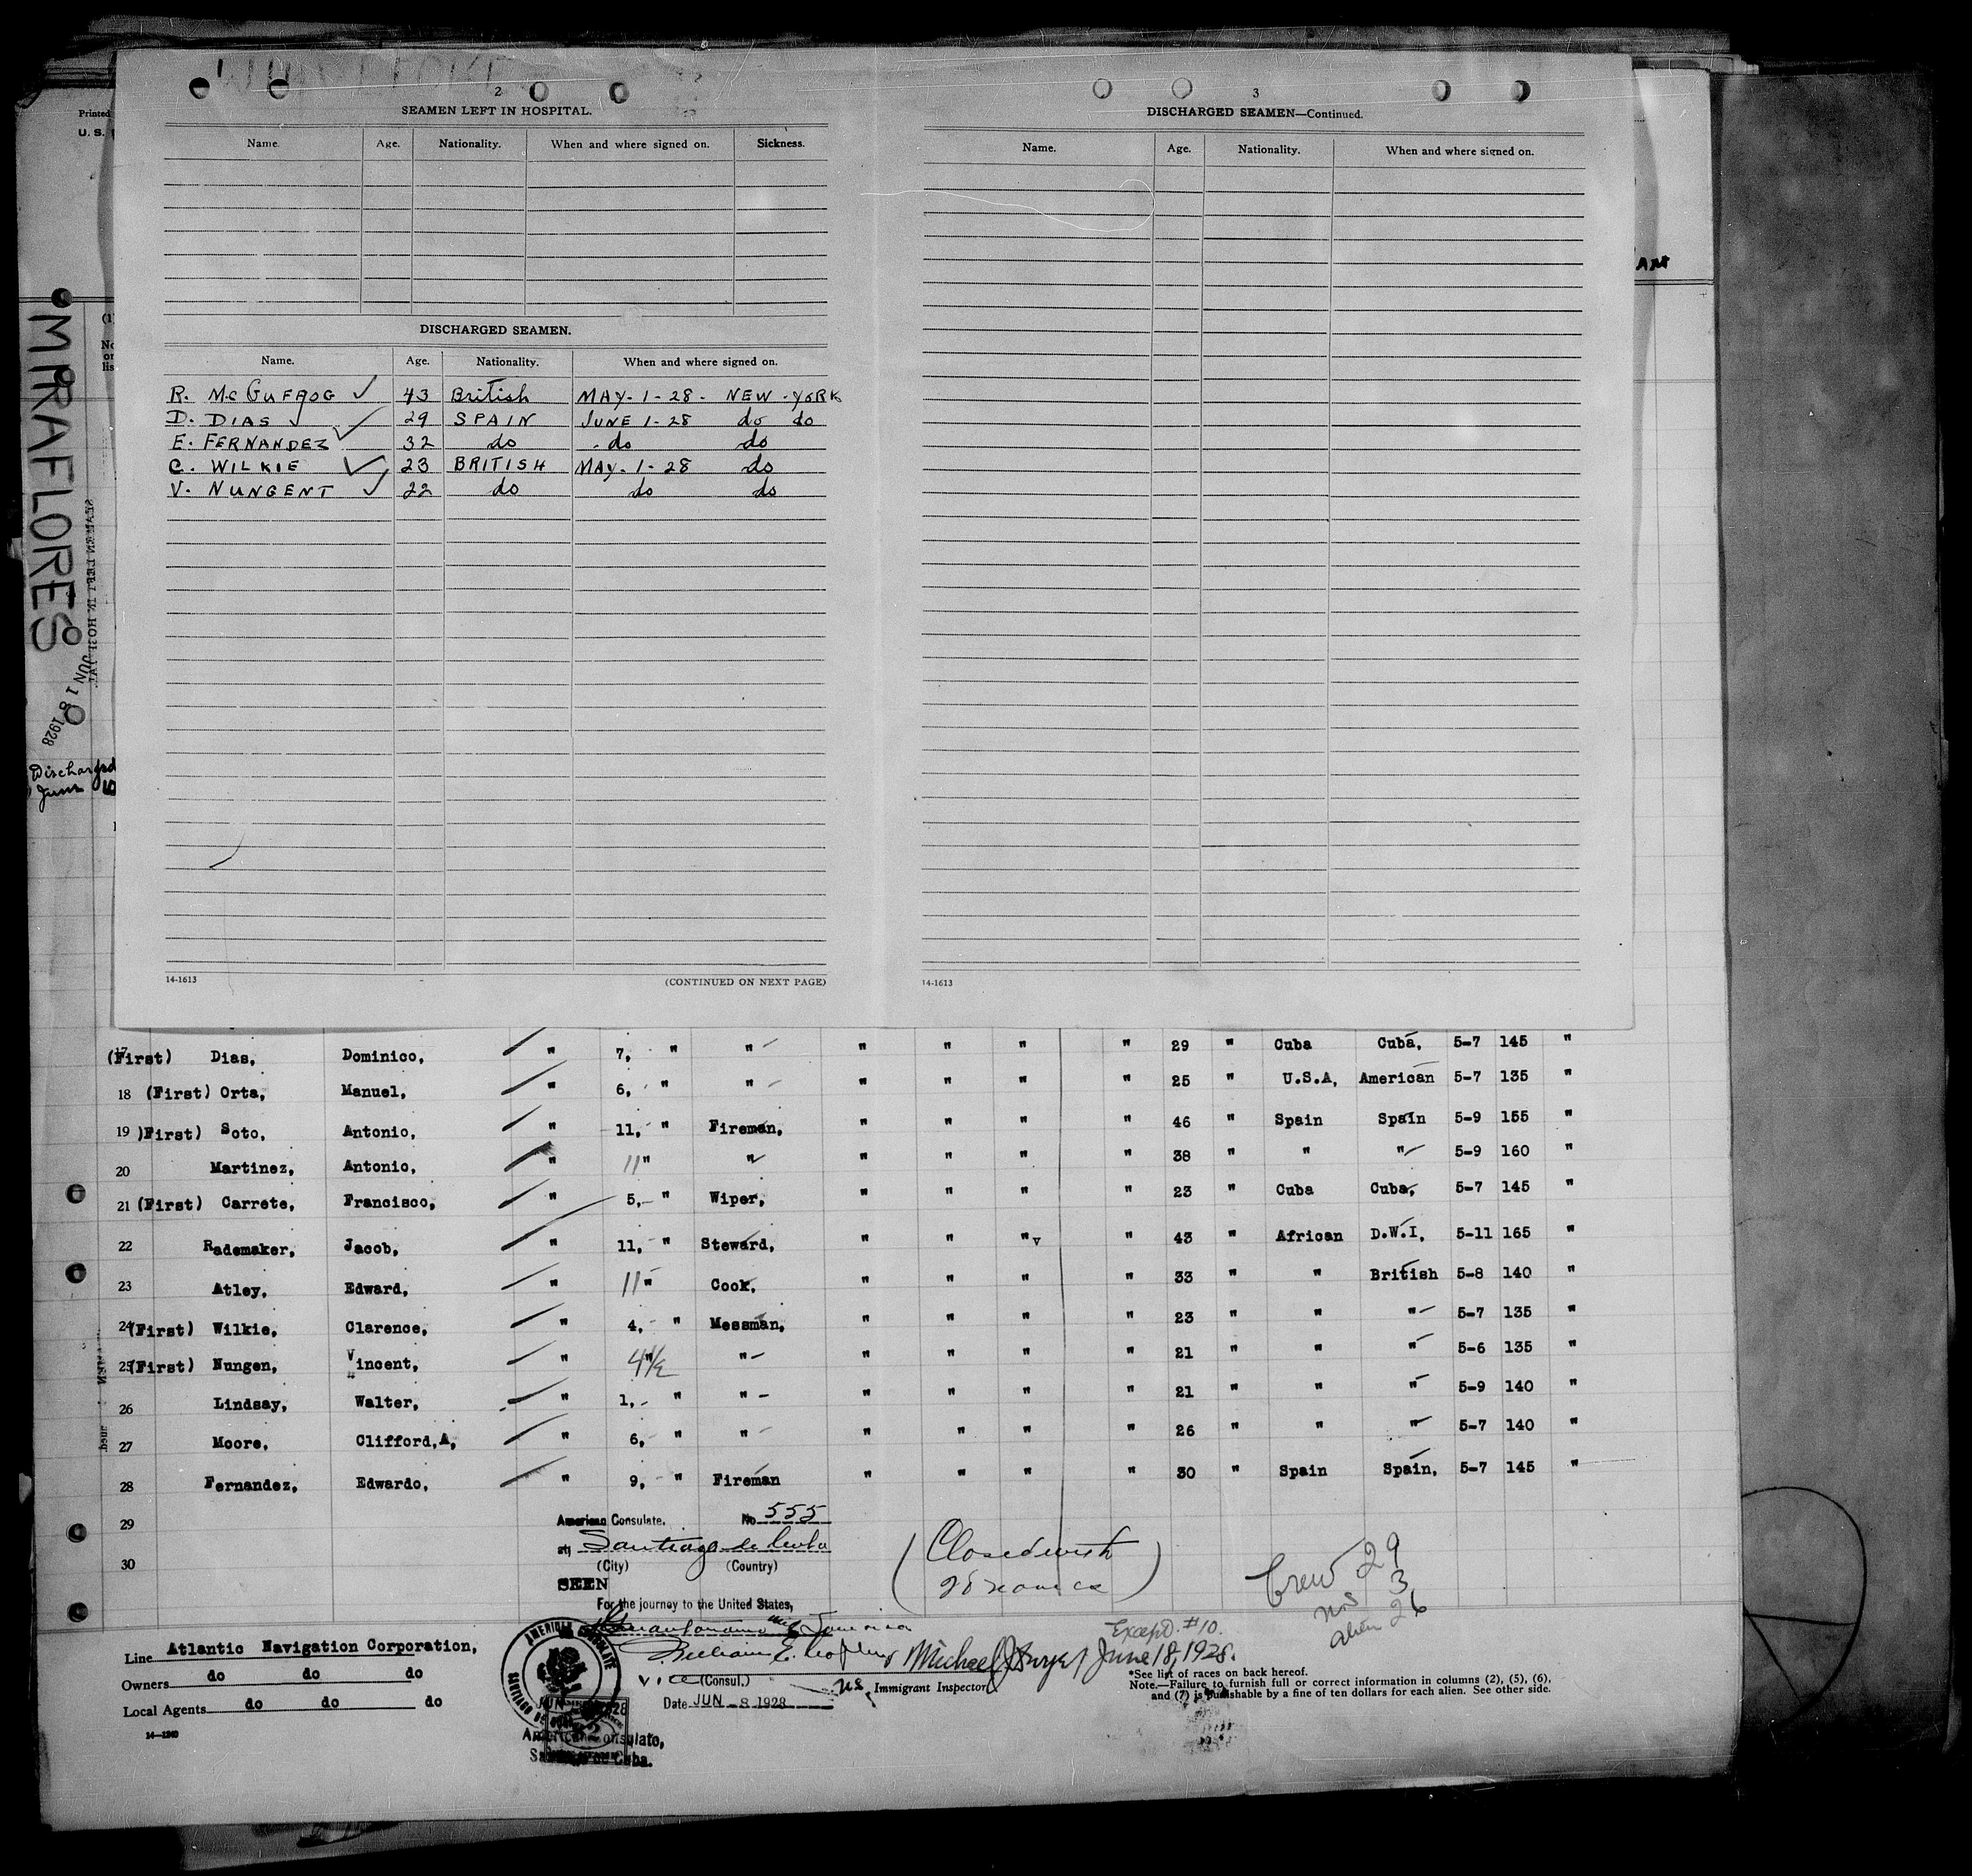 2
SEAMEN LEFT IN HOSPITAL.
Name. Age. Nationality. When and where signed on. Sickness.
DISCHARGED SEAMEN.
Name. Age. Nationality. When and where signed on.
R. McGUFFOG 43 British MAY-1-28- NEW-YORK
D. DIAS 29 SPAIN JUNE 1-28 do do
E. FERNANDEZ 32 do do do
C. WILKIE 23 BRITISH MAY-1-28 do
V. NUNGENT 22 do do do
14-1613 (CONTINUED ON NEXT PAGE)
3
DISCHARGED SEAMEN—Continued.
Name. Age. Nationality. When and where signed on.
14-1613
Printed
U. S.
MIRAFLORES
SEAMEN LEFT IN HOSPITAL
JUN 18 1928
Discharged
June
17 (First) Dias, Dominico, " 7, " " " " " " 29 " Cuba Cuba, 5-7 145 "
18 (First) Orta, Manuel, " 6, " " " " " " 25 " U.S.A, American 5-7 135 "
19 )First) Soto, Antonio, " 11, " Fireman, " " " " 46 " Spain Spain 5-9 155 "
20 Martinez, Antonio, " 11 " " " " " " 38 " " " 5-9 160 "
21 (First) Carrete, Francisco, " 5, " Wiper, " " " " 23 " Cuba Cuba, 5-7 145 "
22 Rademaker, Jacob, " 11, " Steward, " " " v " 43 " African D.W.I, 5-11 165 "
23 Atley, Edward, " 11 " Cook, " " " " 33 " " British 5-8 140 "
24 (First) Wilkie, Clarence, " 4, " Messman, " " " " 23 " " " 5-7 135 "
25 (First) Nungen, Vincent, " 4½ " " " " " " 21 " " " 5-6 135 "
26 Lindsay, Walter, " 1, " " " " " " 21 " " " 5-9 140 "
27 Moore, Clifford,A, " 6, " " " " " " 26 " " " 5-7 140 "
28 Fernandez, Edwardo, " 9, " Fireman " " " " 30 " Spain Spain, 5-7 145 "
29
30
American Consulate. No 555
at Santiago de Cuba
(City) (Country)
SEEN
For the journey to the United States,
Guantanamo Jamaica
William E.
Vice (Consul.)
Date JUN - 8 1928
AMERICAN CONSULATE
SANTIAGO DE CUBA
American Consulate,
Santiago de Cuba.
(Closed with
28 names)
Crew 29
3
Alien 26
Except #10.
June 18, 1928.
US Immigrant Inspector
Line Atlantic Navigation Corporation,
Owners do do do
Local Agents do do do
14—1240
*See list of races on back hereof.
Note.—Failure to furnish full or correct information in columns (2), (5), (6),
and (7) is punishable by a fine of ten dollars for each alien. See other side.